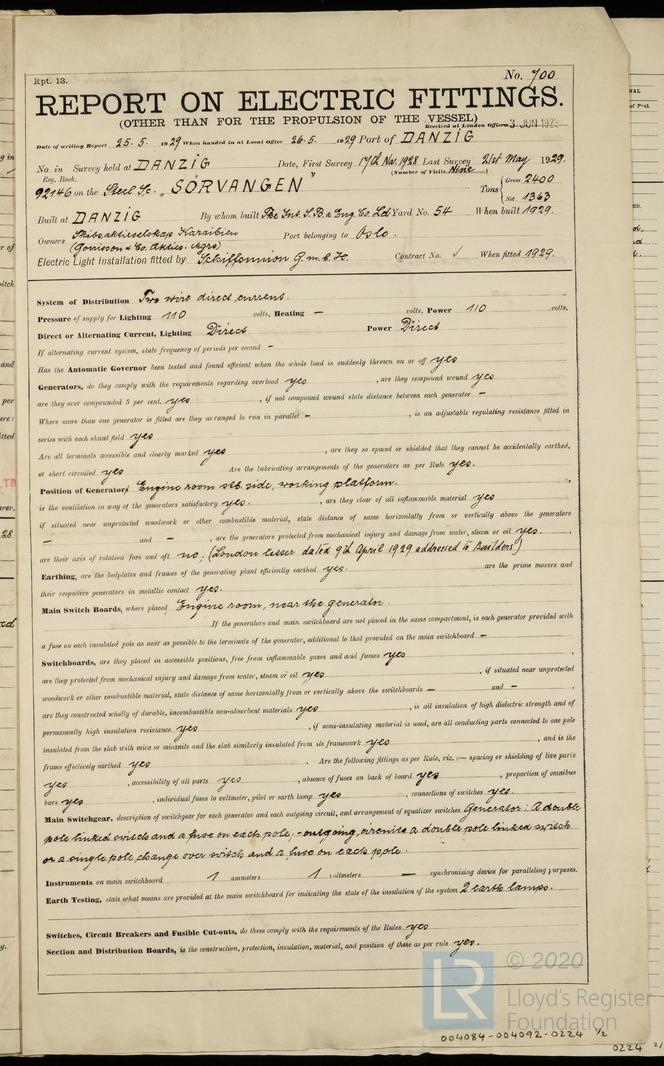 Rpt. 13.
No. 700
REPORT ON ELECTRIC FITTINGS.
(OTHER THAN FOR THE PROPULSION OF THE VESSEL)
Received at London Office 3 JUN 1929
Date of writing Report 25.5. 1929 When handed in at Local Office 26.5. 1929 Port of DANZIG
No. in Survey held at DANZIG Date, First Survey 17th Nov. 1928 Last Survey 21st May 1929.
Reg. Book. (Number of Visits Nine)
92146 on the Steel Sc. „SÖRVANGEN" Tons { Gross 2400
Net 1363
Built at DANZIG By whom built The Int. S. B. & Eng. Co. Ld Yard No. 54 When built 1929.
Owners Skibsaktieselskap Karaibien Port belonging to Oslo.
Electric Light Installation fitted by Schiffsunion G.m.b.H. Contract No. √ When fitted 1929.
System of Distribution Two wire direct current.
Pressure of supply for Lighting 110 volts, Heating — volts, Power 110 volts.
Direct or Alternating Current, Lighting Direct Power Direct
If alternating current system, state frequency of periods per second —
Has the Automatic Governor been tested and found efficient when the whole load is suddenly thrown on or off yes
Generators, do they comply with the requirements regarding overload yes, are they compound wound yes
are they over compounded 5 per cent. yes, if not compound wound state distance between each generator —
Where more than one generator is fitted are they arranged to run in parallel —, is an adjustable regulating resistance fitted in
series with each shunt field yes
Are all terminals accessible and clearly marked yes, are they so spaced or shielded that they cannot be accidentally earthed,
or short circuited yes Are the lubricating arrangements of the generators as per Rule yes.
Position of Generators Engine room stb. side, working platform.
is the ventilation in way of the generators satisfactory yes., are they clear of all inflammable material yes
if situated near unprotected woodwork or other combustible material, state distance of same horizontally from or vertically above the generators
— and —, are the generators protected from mechanical injury and damage from water, steam or oil yes.,
are their axis of rotation fore and aft no. (London letter dated 9th April 1929 addressed to Builders)
Earthing, are the bedplates and frames of the generating plant efficiently earthed yes. are the prime movers and
their respective generators in metallic contact yes.
Main Switch Boards, where placed Engine room, near the generator.
If the generators and main switchboard are not placed in the same compartment, is each generator provided with
a fuse on each insulated pole as near as possible to the terminals of the generator, additional to that provided on the main switchboard —
Switchboards, are they placed in accessible positions, free from inflammable gases and acid fumes yes,
are they protected from mechanical injury and damage from water, steam or oil yes, if situated near unprotected
woodwork or other combustible material, state distance of same horizontally from or vertically above the switchboards — and —,
are they constructed wholly of durable, incombustible non-absorbent materials yes, is all insulation of high dielectric strength and of
permanently high insulation resistance yes, if semi-insulating material is used, are all conducting parts connected to one pole
insulated from the slab with mica or micanite and the slab similarly insulated from its framework yes, and is the
frame effectively earthed yes. Are the following fittings as per Rule, viz.:— spacing or shielding of live parts
yes, accessibility of all parts yes, absence of fuses on back of board yes, proportion of omnibus
bars yes, individual fuses to voltmeter, pilot or earth lamp yes, connections of switches yes.
Main Switchgear, description of switchgear for each generator and each outgoing circuit, and arrangement of equalizer switches Generator: A double
pole linked switch and a fuse on each pole, - outgoing circuits a double pole linked switch
or a single pole change over switch and a fuse on each pole.
Instruments on main switchboard 1 ammeters 1 voltmeters — synchronizing device for paralleling purposes.
Earth Testing, state what means are provided at the main switchboard for indicating the state of the insulation of the system 2 earth lamps.
Switches, Circuit Breakers and Fusible Cut-outs, do these comply with the requirements of the Rules yes
Section and Distribution Boards, is the construction, protection, insulation, material, and position of these as per rule yes.
LR © 2020
Lloyd's Register
Foundation
004084-004092-0224 1/2
0224